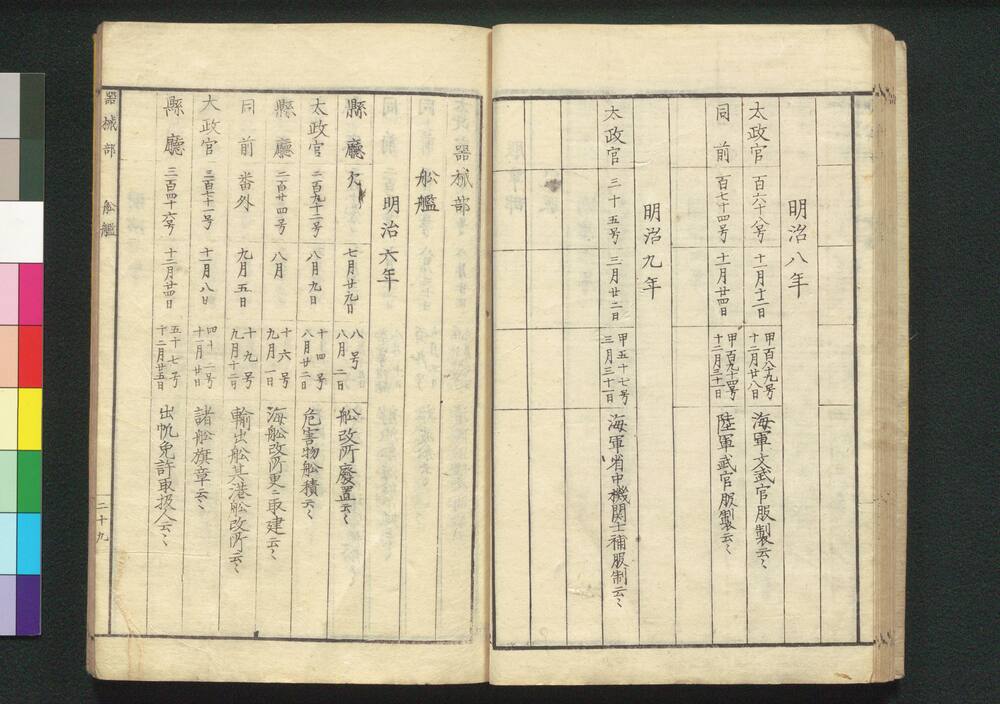 明治八年
太政官 百六十八号 十一月十二日 甲百八十九号 十二月廿八日 海軍文武官服製云〻
同前 百七十四号 十一月廿四日 甲百九十四号 十二月三十一日 陸軍武官服製云〻
明治九年
太政官 三十五号 三月廿二日 甲五十七号 三月三十一日 海軍省中機関士補服制云〻
器械部
舩艦
明治六年
縣廳 欠 七月廿九日 八号 八月二日 舩改所廢置云〻
太政官 二百九十二号 八月九日 十四号 八月廿二日 危害物舩積云〻
縣廳 二百廿四号 八月 十六号 九月一日 海舩改所更ニ取建云〻
同前 番外 九月五日 十九号 九月十二日 輸出舩其港舩改所云〻
太政官 三百七十一号 十一月八日 四十二号 十一月廿日 諸舩旗章云〻
縣廳 三百四十六号 十二月廿四日 五十七号 十二月廿五日 出帆免許取扱人云〻
器械部 舩艦
二十九